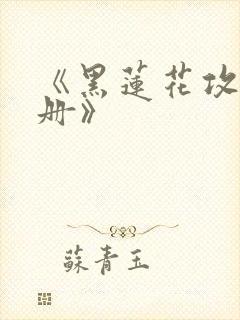 《黑蓮花攻
册》
蘇青玉